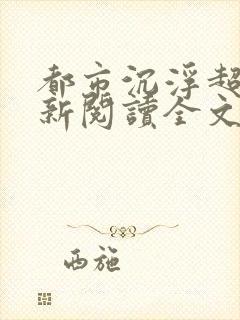 都市沉浮超
新閱讀全文
西施